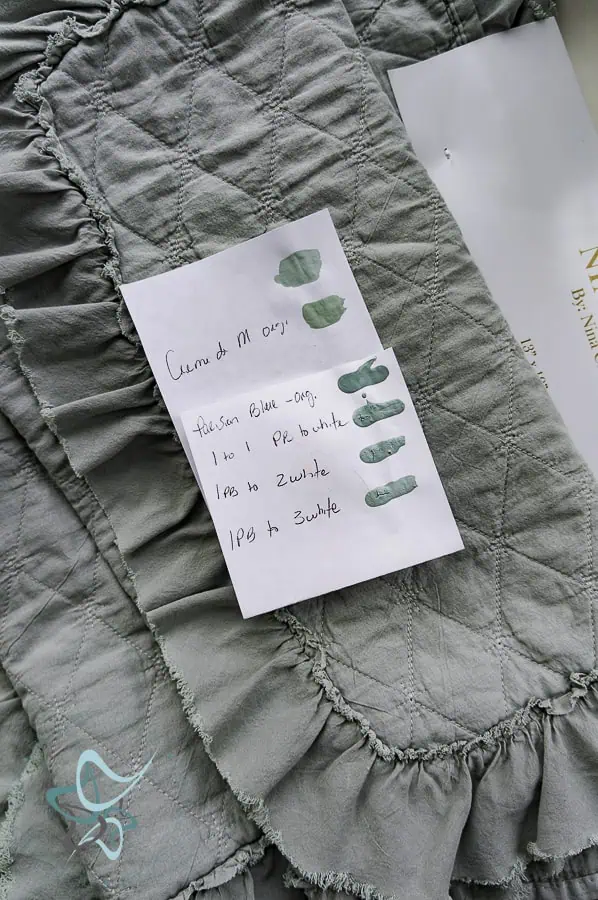 Creme de M Orig.
Parisian Blue - Orig.
1 to 1 PB to white
1PB to 2white
1PB to 3white
By: Nina
13"